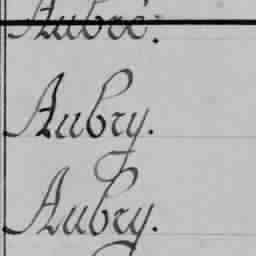 Aubré.
Aubry.
Aubry.